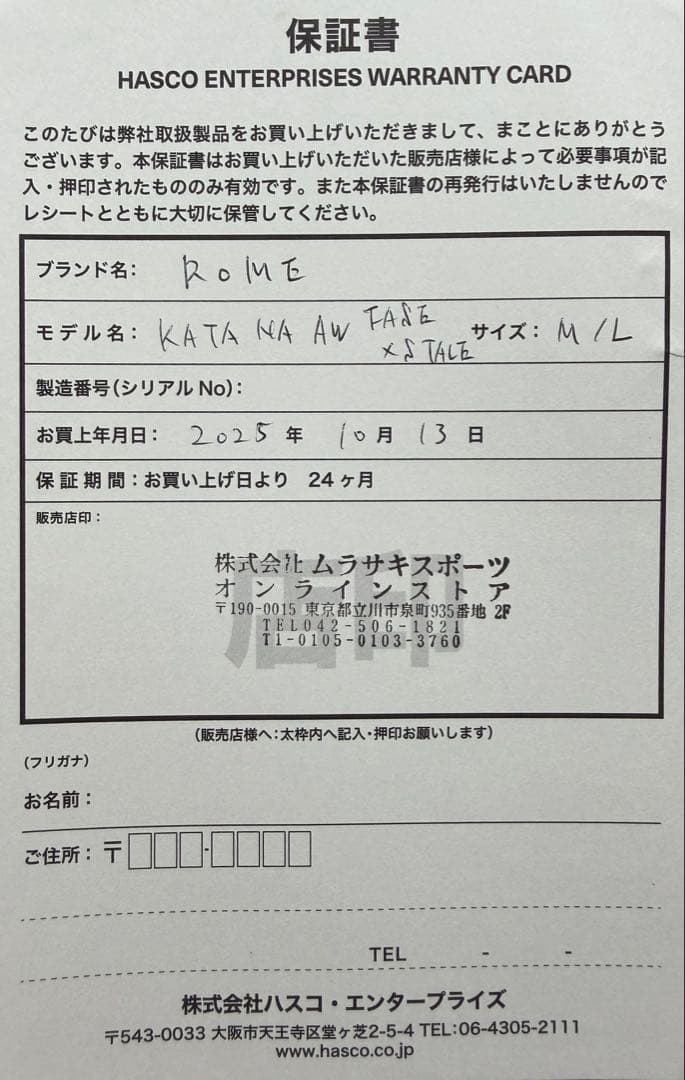 保証書
HASCO ENTERPRISES WARRANTY CARD
このたびは弊社取扱製品をお買い上げいただきまして、まことにありがとう
ございます。本保証書はお買い上げいただいた販売店様によって必要事項が記
入・押印されたもののみ有効です。また本保証書の再発行はいたしませんので
レシートとともに大切に保管してください。
ブランド名: ROME
モデル名: KATANA AW FASE サイズ: M/L
×STALE
製造番号(シリアルNo):
お買上年月日: 2025 年 10 月 13 日
保証期間:お買い上げ日より 24ヶ月
販売店印:
店印
株式会社 ムラサキスポーツ
オンラインストア
〒190-0015 東京都立川市泉町935番地 2F
TEL042-506-1821
T1-0105-0103-3760
(販売店様へ:太枠内へ記入・押印お願いします)
(フリガナ)
お名前:
ご住所: 〒 -
TEL - -
株式会社ハスコ・エンタープライズ
〒543-0033 大阪市天王寺区堂ヶ芝2-5-4 TEL:06-4305-2111
www.hasco.co.jp